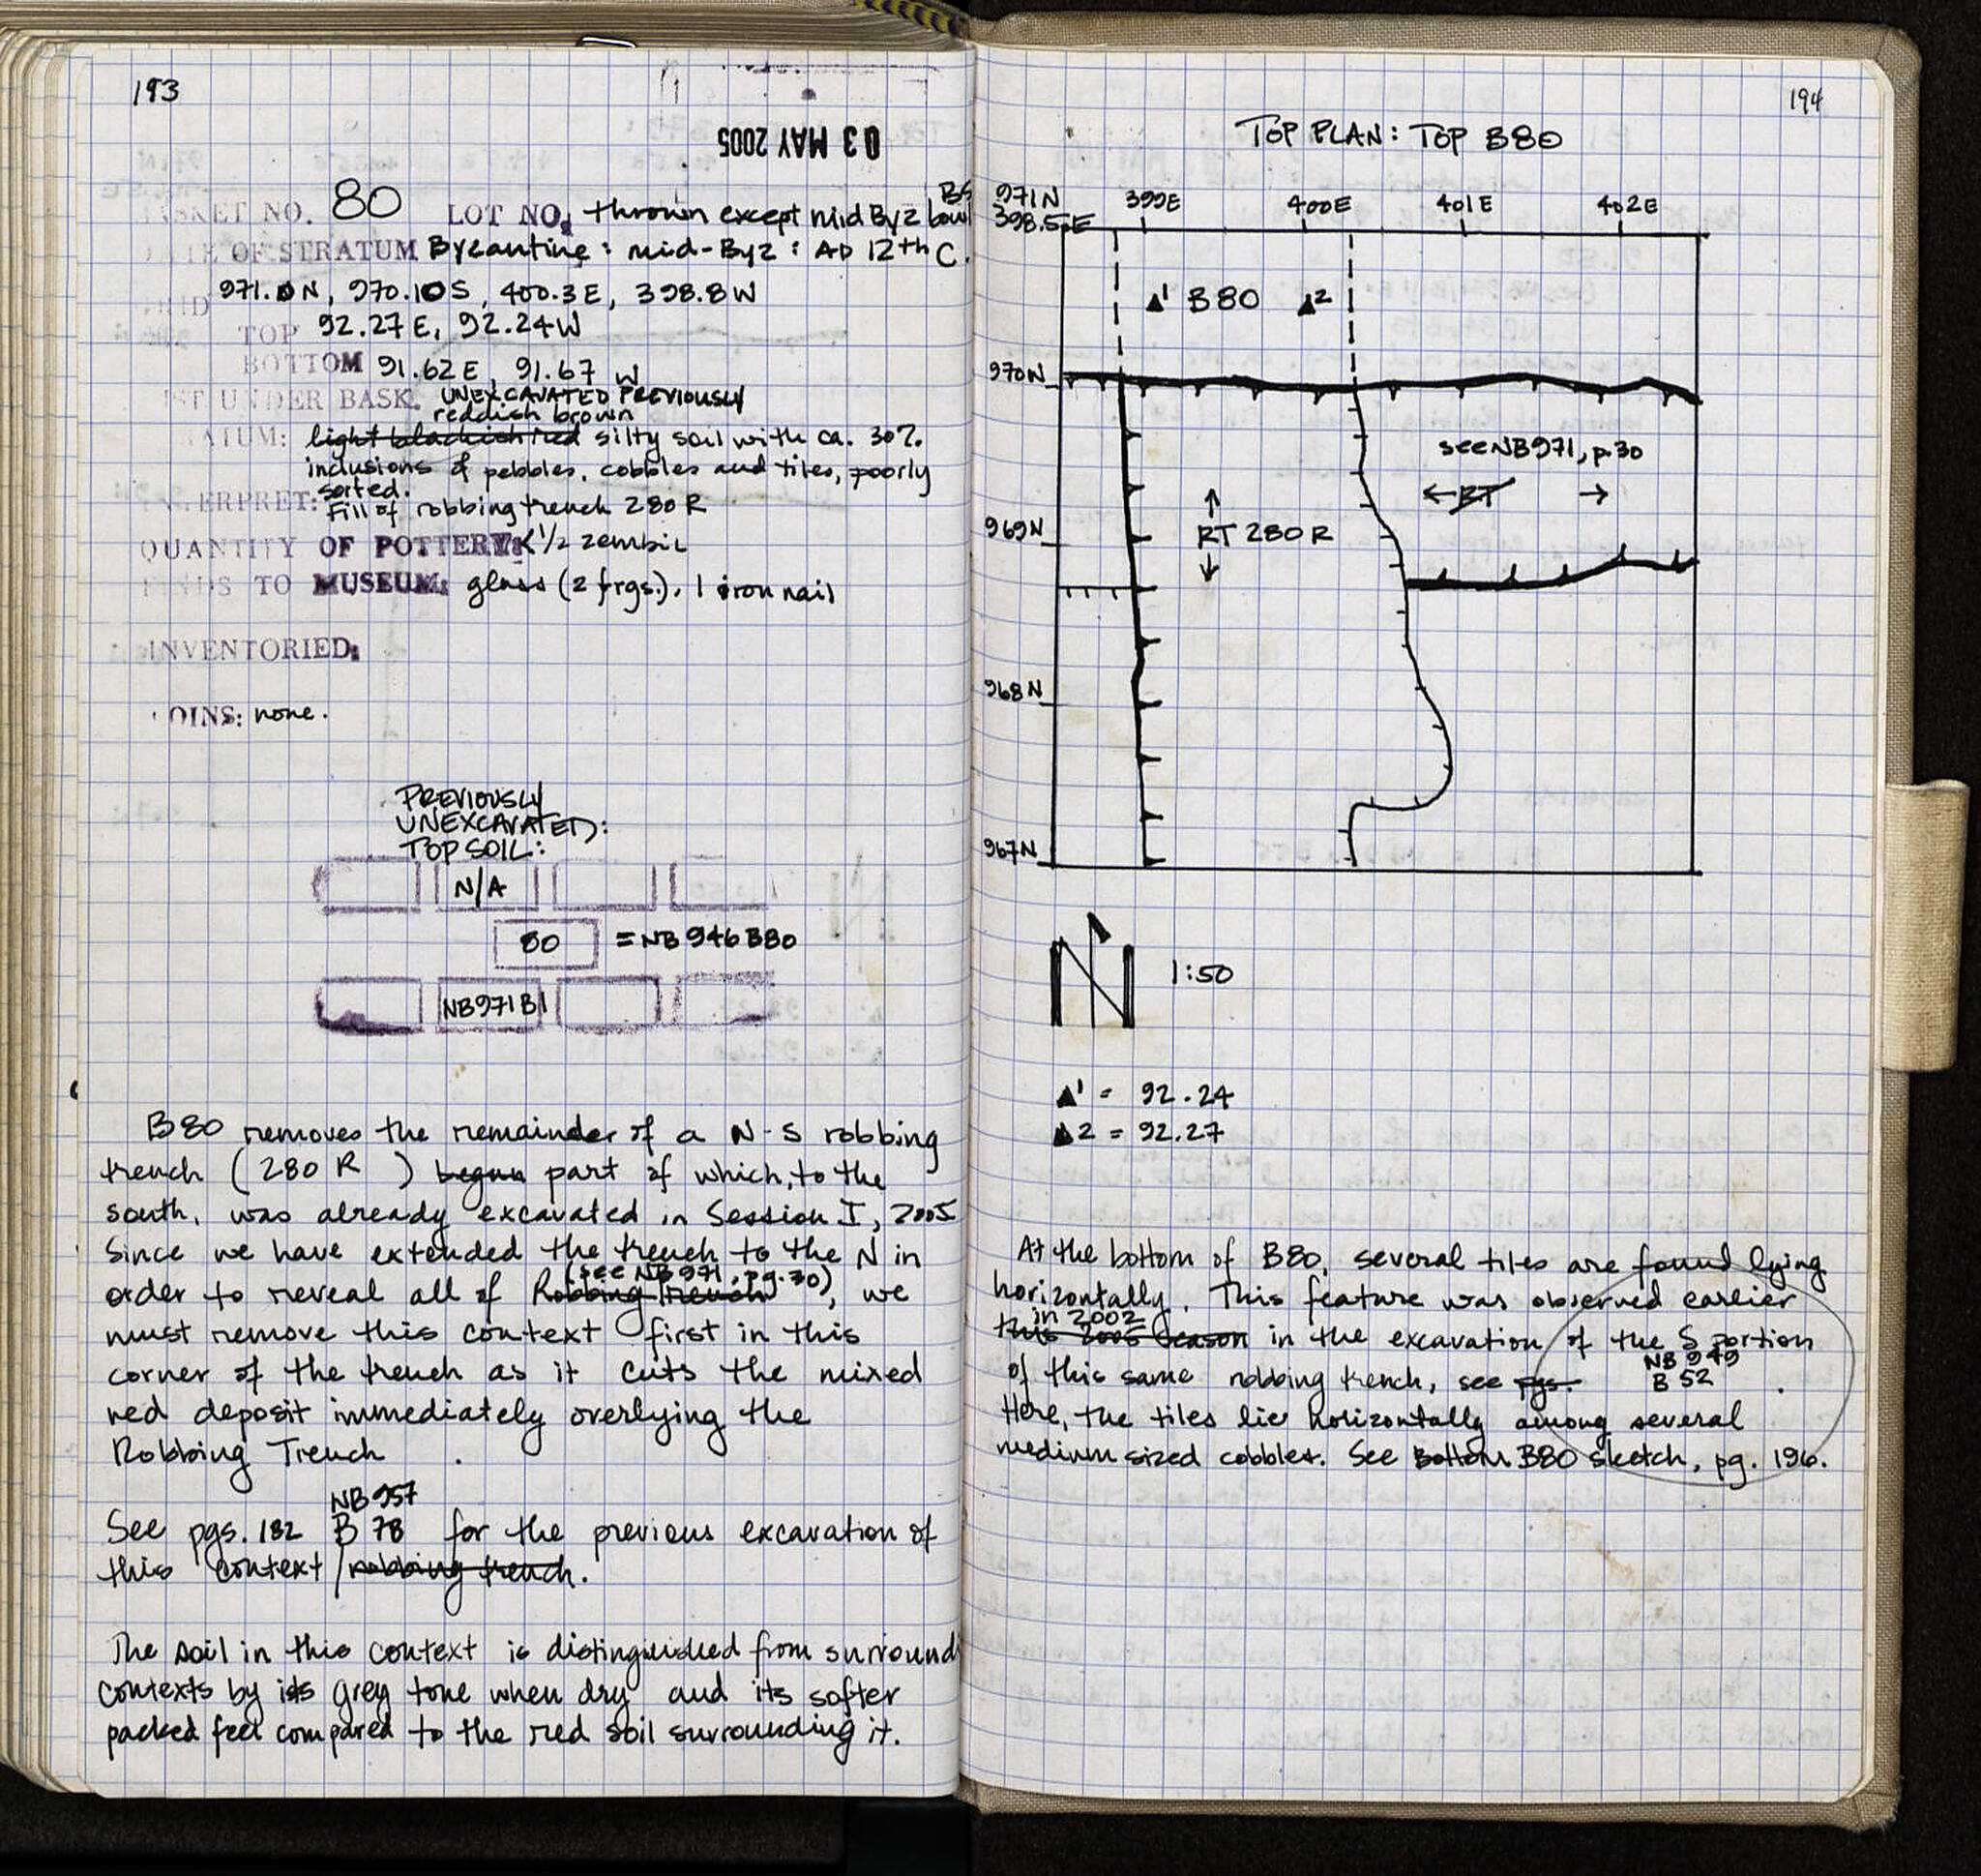 193
03 MAY 2005
BASKET NO. 80 LOT NO. thrown except mid Byz bowl BS
DATE OF STRATUM Byzantine: mid-Byz: AD 12th C.
GRID 971.0N, 970.10S, 400.3E, 398.8W
TOP 92.27E, 92.24W
BOTTOM 91.62E, 91.67 W
1ST UNDER BASK. UNEXCAVATED PREVIOUSLY
reddish brown
STRATUM: light blackish red silty soil with ca. 30%
inclusions of pebbles, cobbles and tiles, poorly
sorted.
INTERPRET: Fill of robbing trench 280 R
QUANTITY OF POTTERY: < 1/2 zembil
FINDS TO MUSEUM: glass (2 frgs.), 1 iron nail
INVENTORIED:
COINS: none.
PREVIOUSLY
UNEXCAVATED:
TOP SOIL:
N/A
80 = NB 946 B80
NB971B1
B80 removes the remainder of a N-S robbing
trench (280 R ) begun part of which, to the
south, was already excavated in Session I, 2005
Since we have extended the trench to the N in
(see NB 971, pg. 30)
order to reveal all of Robbing Trench, we
must remove this context first in this
corner of the trench as it cuts the mixed
red deposit immediately overlying the
Robbing Trench .
NB 957
See pgs. 182 B 78 for the previous excavation of
this context / robbing trench.
The soil in this context is distinguished from surround
contexts by its grey tone when dry and its softer
packed feel compared to the red soil surrounding it.
194
TOP PLAN: TOP B80
971N
398.5E 399E 400E 401E 402E
▲1 B80 ▲2
970N
see NB971, p.30
← RT →
969N
↑
RT 280 R
↓
968N
967N
N 1:50
▲1 = 92.24
▲2 = 92.27
At the bottom of B80, several tiles are found lying
horizontally. This feature was observed earlier
in 2002
this 2005 season in the excavation of the S portion
NB 949
of this same robbing trench, see pgs. B 52 .
Here, the tiles lie horizontally among several
medium sized cobbles. See Bottom B80 sketch, pg. 196.